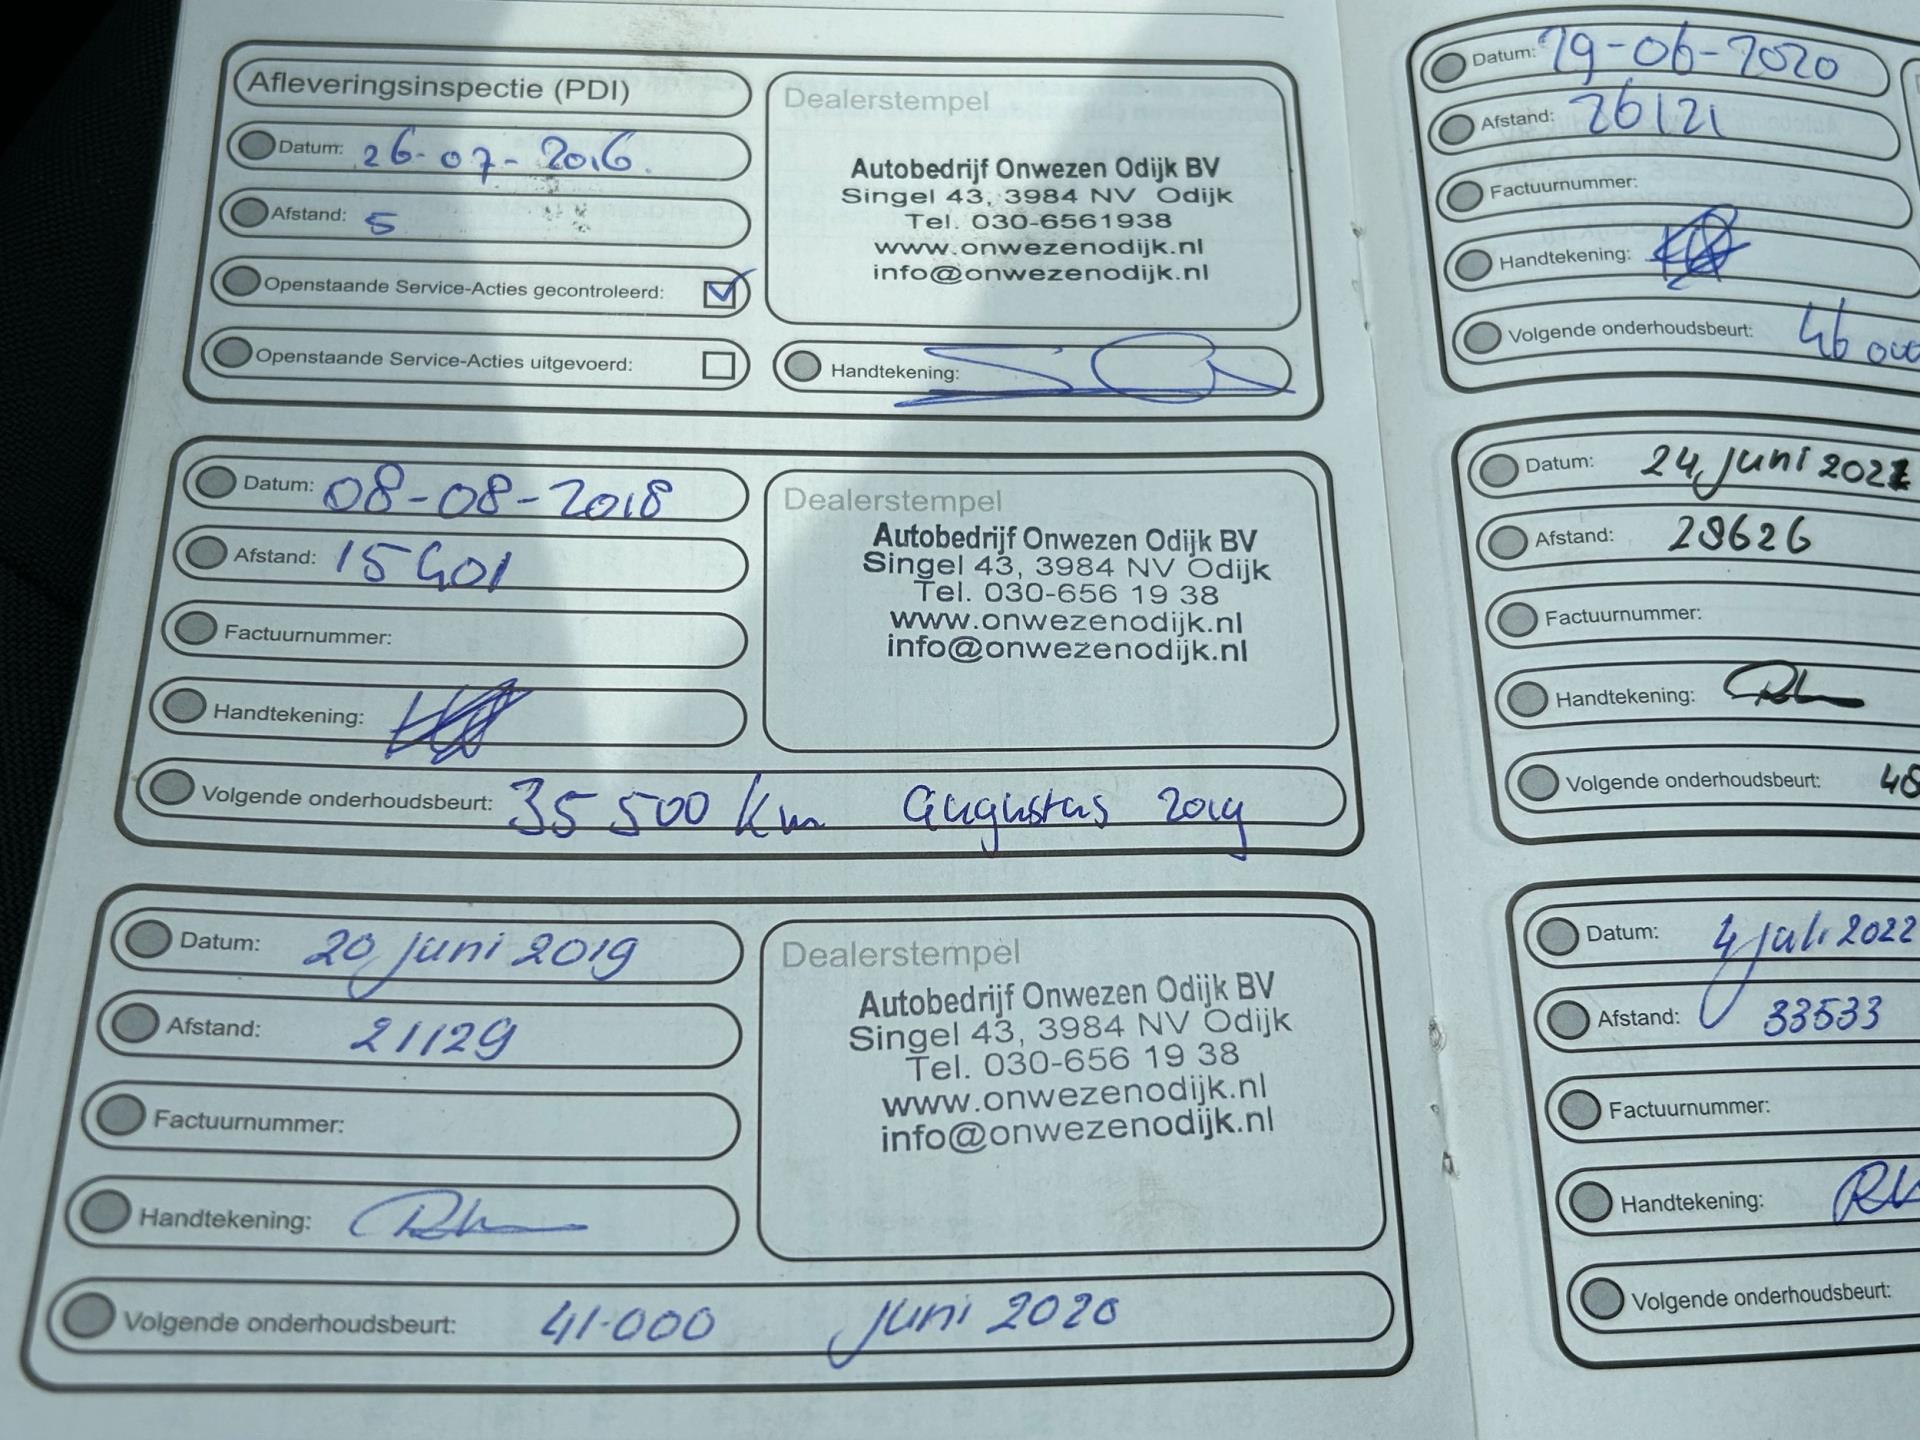 Afleveringsinspectie (PDI)
Datum: 26-07-2016.
Afstand: 5
Openstaande Service-Acties gecontroleerd:
Openstaande Service-Acties uitgevoerd:
Dealerstempel
Autobedrijf Onwezen Odijk BV
Singel 43, 3984 NV Odijk
Tel. 030-6561938
www.onwezenodijk.nl
info@onwezenodijk.nl
Handtekening:
Datum: 08-08-2018
Afstand: 15401
Factuurnummer:
Handtekening:
Dealerstempel
Autobedrijf Onwezen Odijk BV
Singel 43, 3984 NV Odijk
Tel. 030-656 19 38
www.onwezenodijk.nl
info@onwezenodijk.nl
Volgende onderhoudsbeurt: 35 500 km Augustus 2019
Datum: 20 juni 2019
Afstand: 21129
Factuurnummer:
Handtekening:
Dealerstempel
Autobedrijf Onwezen Odijk BV
Singel 43, 3984 NV Odijk
Tel. 030-656 19 38
www.onwezenodijk.nl
info@onwezenodijk.nl
Volgende onderhoudsbeurt: 41.000 juni 2020
Datum: 29-06-2020
Afstand: 26121
Factuurnummer:
Handtekening:
Volgende onderhoudsbeurt: 46 000
Datum: 24 juni 2021
Afstand: 28626
Factuurnummer:
Handtekening:
Volgende onderhoudsbeurt: 48
Datum: 4 juli 2022
Afstand: 33533
Factuurnummer:
Handtekening:
Volgende onderhoudsbeurt: